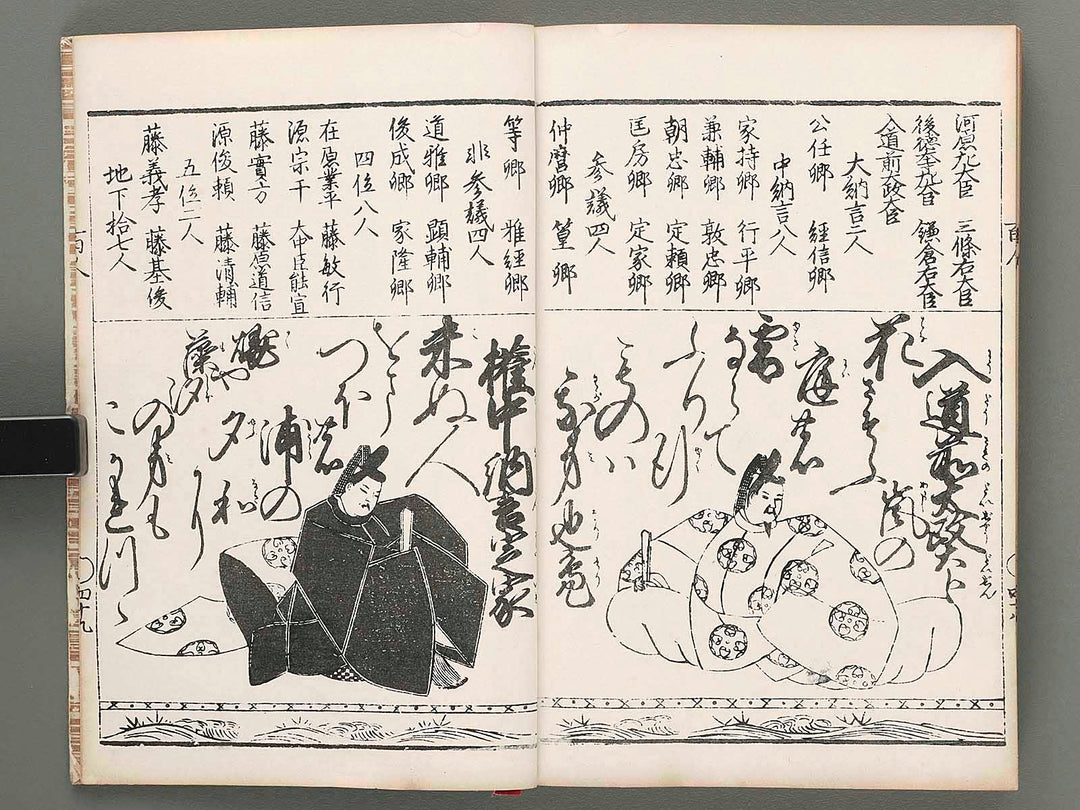 河原左大臣　三條右大臣
後徳大寺左大臣　鎌倉右大臣
入道前太政大臣
大納言二人
公任卿　経信卿
中納言八人
家持卿　行平卿
兼輔卿　敦忠卿
朝忠卿　定頼卿
匡房卿　定家卿
参議四人
仲麿卿　篁卿
入道前太政大臣
花さそふ
嵐の
庭の
雪
ならて
ふり行
ものハ
我身也
百人
等卿　雅経卿
非参議四人
道雅卿　顕輔卿
俊成卿　家隆卿
四位八人
在原業平　藤敏行
源宗于　大中臣能宣
藤實方　藤原道信
源俊頼　藤清輔
五位二人
藤義孝　藤基俊
地下拾七人
権中納言定家
来ぬ人
をまつほ
の
浦の
夕
和
に
焼や
藻汐
の
身も
こかれつゝ
百人
四十九